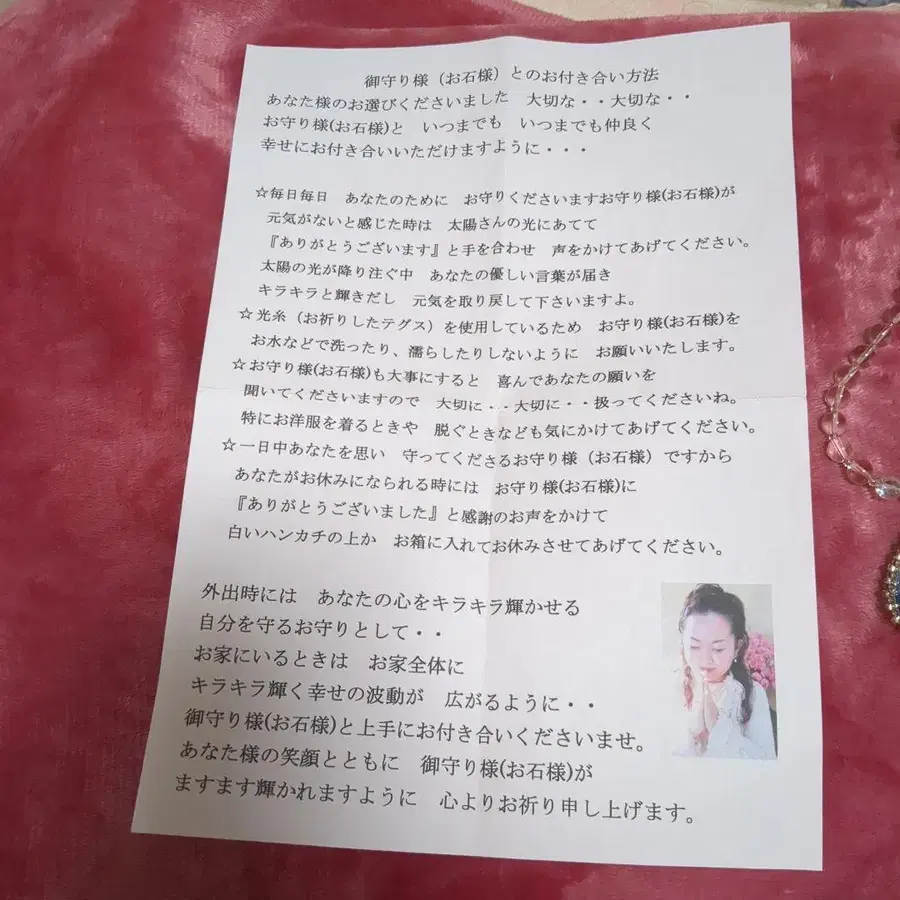 御守り様（お石様）とのお付き合い方法
あなた様のお選びくださいました　大切な・・大切な・・
お守り様(お石様)と　いつまでも　いつまでも仲良く
幸せにお付き合いいただけますように・・・
☆毎日毎日　あなたのために　お守りくださいますお守り様(お石様)が
元気がないと感じた時は　太陽さんの光にあてて
『ありがとうございます』と手を合わせ　声をかけてあげてください。
太陽の光が降り注ぐ中　あなたの優しい言葉が届き
キラキラと輝きだし　元気を取り戻して下さいますよ。
☆光糸（お祈りしたテグス）を使用しているため　お守り様(お石様)を
お水などで洗ったり、濡らしたりしないように　お願いいたします。
☆お守り様(お石様)も大事にすると　喜んであなたの願いを
聞いてくださいますので　大切に・・大切に・・扱ってくださいね。
特にお洋服を着るときや　脱ぐときなども気にかけてあげてください。
☆一日中あなたを思い　守ってくださるお守り様（お石様）ですから
あなたがお休みになられる時には　お守り様(お石様)に
『ありがとうございました』と感謝のお声をかけて
白いハンカチの上か　お箱に入れてお休みさせてあげてください。
外出時には　あなたの心をキラキラ輝かせる
自分を守るお守りとして・・
お家にいるときは　お家全体に
キラキラ輝く幸せの波動が　広がるように・・
御守り様(お石様)と上手にお付き合いくださいませ。
あなた様の笑顔とともに　御守り様(お石様)が
ますます輝かれますように　心よりお祈り申し上げます。